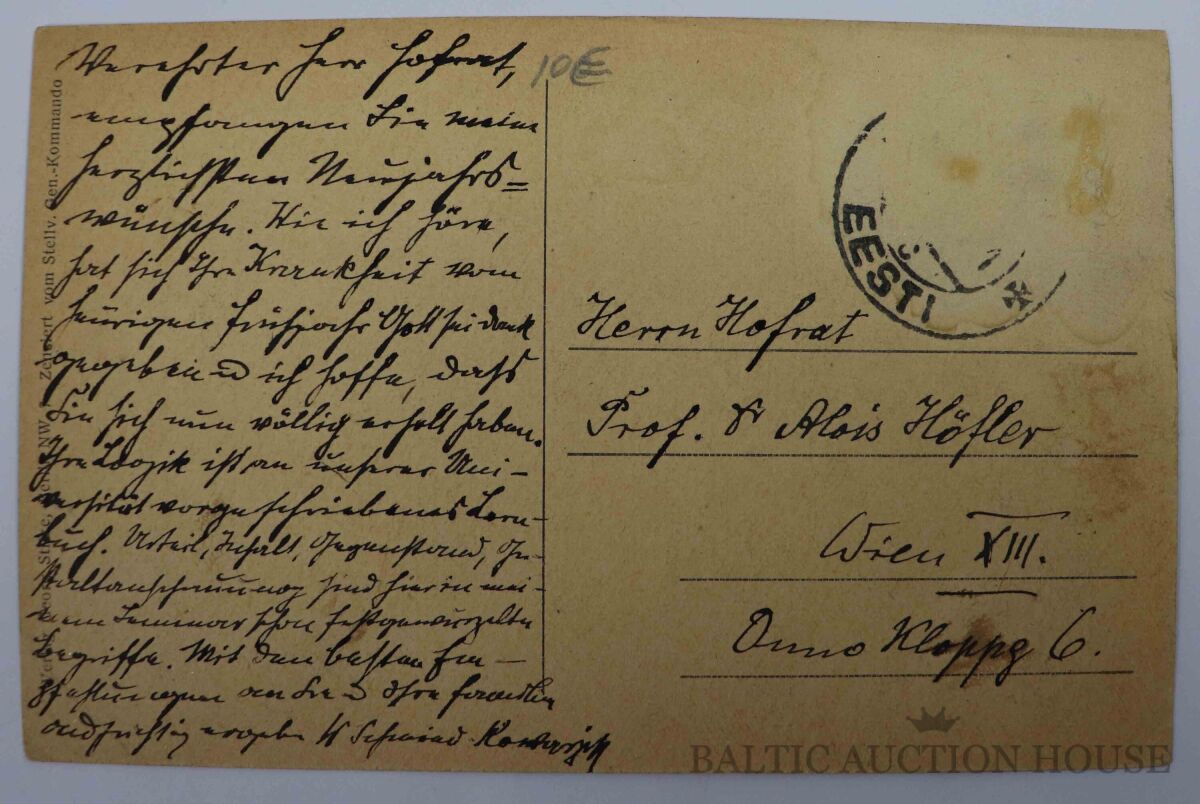 Verehrter Herr Hofrat,
empfangen Sie meine
herzlichsten Neujahrs=
wünsche. Wie ich höre,
hat sich Ihre Krankheit vom
heurigen Frühjahr Gott sei dank
gegeben u ich hoffe, dass
Sie sich nun völlig erholt haben.
Ihre Logik ist an unserer Uni-
versität vorgeschriebenes Lern-
buch. Urteil, Inhalt, Gegenstand, Ge-
staltanschauung sind hier in mei-
nem Seminar schon festgewurzelte
Begriffe. Mit den besten Em-
pfehlungen an Sie u Ihre Familie
W Schmied-Kowarzik
10€
EESTI
Herrn Hofrat
Prof. Dr Alois Höfler
Wien XIII.
Onno Kloppg 6.
Zensiert vom Stellv. Gen.-Kommando
BALTIC AUCTION HOUSE